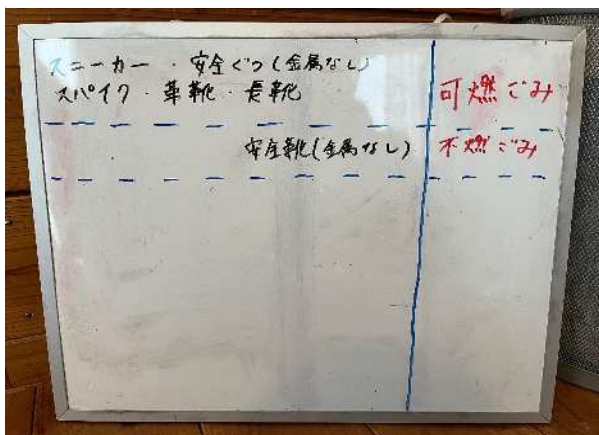 スニーカー・安全ぐつ(金属なし)
スパイク・革靴・長靴
可燃ごみ
安全靴(金属なし)
不燃ごみ